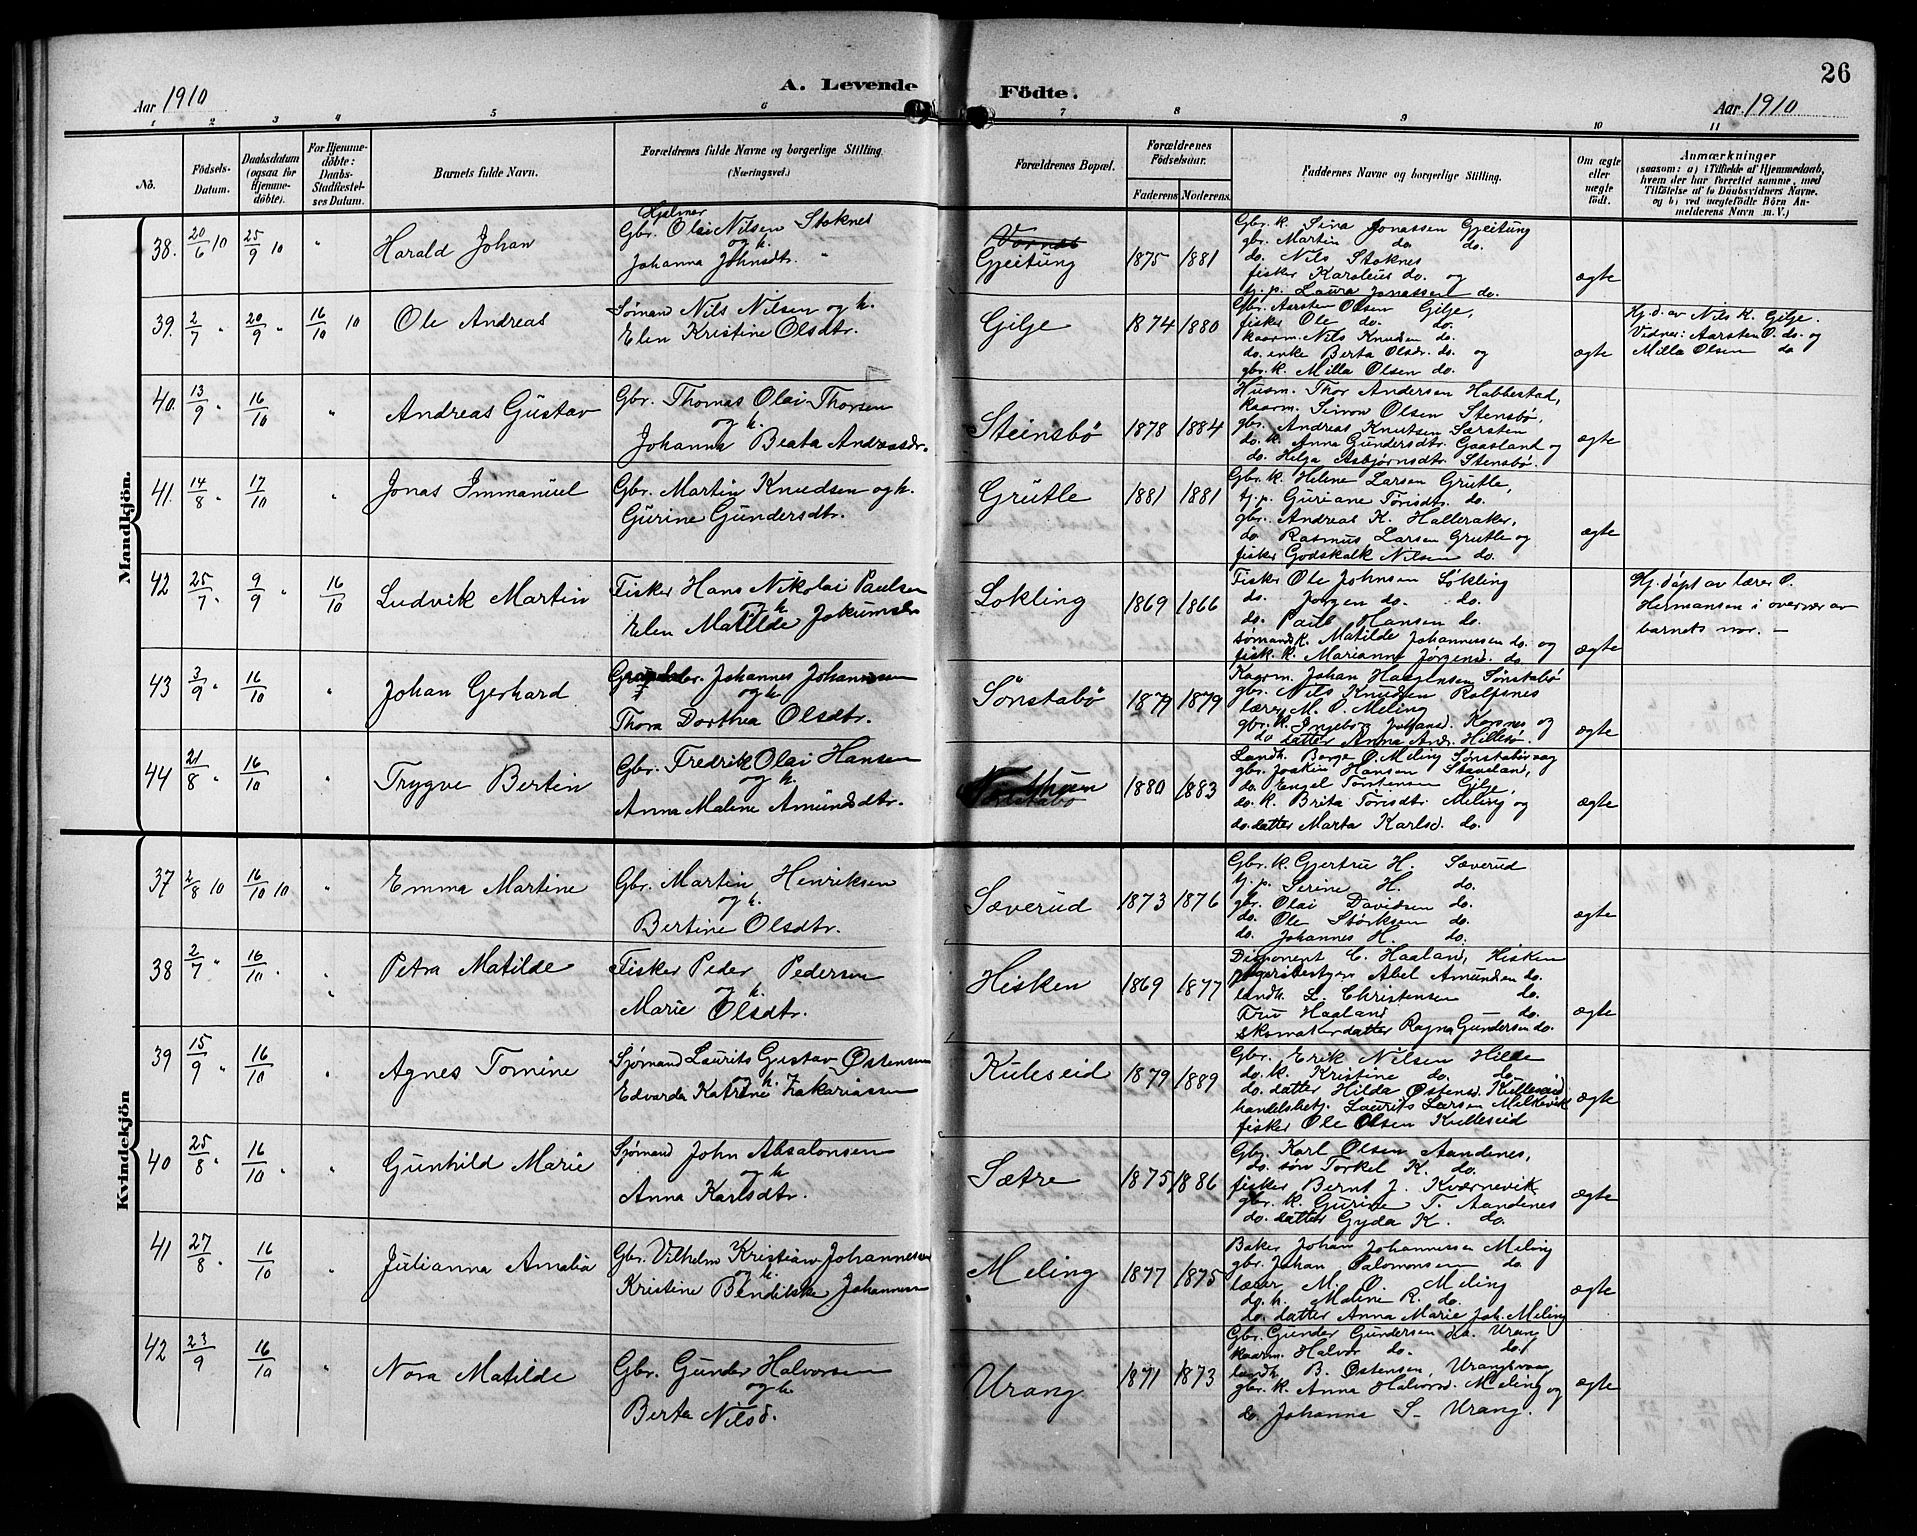 Aar 1910
A. Levende Födte.
26
Aar 1910
1 2 3 4 5 6 7 8 9 10 11
No.
Födsels-Datum.
Daabsdatum (ogsaa for Hjemmedöbte).
For Hjemmedöbte: Daabs-Stadfæstelses Datum.
Barnets fulde Navn.
Forældrenes fulde Navne og borgerlige Stilling (Næringsvei.)
Forældrenes Bopæl.
Forældrenes Födselsaar.
Faderens Moderens.
Faddernes Navne og borgerlige Stilling.
Om ægte eller uægte födt.
Anmærkninger
(saasom: a) i Tilfælde af Hjemmedaab,
hvem der har forrettet samme, med
Tilföielse af to Daabsvidners Navne.
og b) ved uægtefödte Börn Anmelderens Navn m. V.)
Mandkjön.
38. 20/6 10 25/9 10 " Harald Johan
Hjelmer
Gbr. Olai Nilsen Stoknes
og h.
Johanna Johnsdtr. "
Gjeitung 1875 1881
Gbr. k. Sina Jonassen Gjeitung
gbr. Martin do do.
do. Nils Stoknes
fisker Karoleus do. og
tj. p. Laura Jonassen do.
ægte
39. 2/7 " 20/9 " 16/10 10 Ole Andreas
Sømand Nils Nilsen og h.
Elen Kristine Olsdtr.
Gilje 1874 1880
Gbr. Aarsten Olsen Gilje,
fisker Ole do. do.
kaarm. Nils Knudsen do.
do. enke Berta Olsdr. do. og
gbr. k. Milla Olsen do.
ægte
Hj. d. av Nils K. Gilje.
Vidner: Aarsten O. do. og
Milla Olsen do
40. 13/9 " 16/10 " Andreas Gustav
Gbr. Thomas Olai Thorsen
og h.
Johanna Beata Andreasdr.
Steinsbø 1878 1884
Husm. Thor Andersen Habbestad,
kaarm. Simon Olsen Stensbø,
gbr. Andreas Knutsen Særsten
do. k. Anna Gundersdtr. Gaasland og
do. Helga Asbjørnsdtr. Stensbø.
ægte
41. 14/8 " 17/10 " Jonas Immanuel
Gbr. Martin Knudsen og h.
Gurine Gundersdtr.
Grutle 1881 1881
Gbr. k. Helene Larsen Grutle,
tj. p. Guriane Torisdtr. do.
gbr. Andreas K. Halleraker,
do Rasmus Larsen Grutle og
fisker Godskalk Nilsen do.
ægte
42 25/7 " 9/9 " 16/10 Ludvik Martin
Fisker Hans Nikolai Paulsen
og h
Elen Matilde Jokumsdr
Lokling 1869 1866
Fisker Ole Johnsen Løkling
do. Jorgen do. do.
do. Paul Hansen do.
sømandk. Matilde Johannessen do. og
fisk. k. Marianne Jørgensd. do.
ægte
Hj. døpt av lærer O.
Hermansen i overvær av
barnets mor. –
43 3/9 " 16/10 " Johan Gerhard
Johannes Johannesen
og h
Thora Dorthea Olsdtr.
Sönstabö 1879 1879
Kaarm. Johan Haagensen Sønstabø
gbr. Nils Knudsen Rolfsnes
lærer M. O. Meling
gbr. k. Ingeborg Johand. Kopsnes og
do datter Anna Andr. Hillesø.
ægte
44 21/8 16/10 " Trygve Bertin
Gbr. Fredrik Olai Hansen
og h.
Anna Maline Amundsdtr.
1880 1883
Landh. Borge O. Meling Sønstabøvaag
gbr. Joakim Hansen Staveland,
do. Engel Torstensen Gilje,
do. k. Brita Torisdtr. Meling og
do. datter Marta Karlsd. do.
ægte
Kvindekjön
37 2/8 10 16/10 10 " Emma Martine
Gbr. Martin Henriksen
og h.
Bertine Olsdtr.
Sæverud 1873 1876
Gbr. k. Gjertru H. Sæverud
tj. p. Serine H. do.
gbr. Olai Davidsen do.
do. Ole Størksen do.
do. Johannes H. do.
ægte
38 2/7 " 16/10 " Petra Matilde
Fisker Peder Pedersen
og h.
Marie Olsdtr.
Hisken 1869 1877
Disponent C. Haaland, Hisken
Abel Amundsen do.
landh. L. Christensen do.
Fru Haaland do.
skomakerdatter Ragna Gundersen do.
ægte
39 15/9 " 16/10 " Agnes Tomine
Sjømand Laurits Gustav Østensen
og h.
Edvarda Katrine Zakariassen
Kuleseid 1879 1889
Gbr. Erik Nilsen Hille
do. k. Kristine do. do.
do. datter Hilda Østensd. Kulleseid
handelsbetj. Laurits Larsen Melkevik
fisker Ole Olsen Kulleseid
ægte
40 25/8 " 16/10 " Gunhild Marie
Sjømand John Absalonsen
og h
Anna Karlsdtr.
Sætre 1875 1886
Gbr. Karl Olsen Aandenes,
do. søn Torkel K. do.
fisker Bernt J. Kværnevik
gbr. k. Gurine T. Aandenes
do. datter Gyda K. do.
ægte
41 27/8 . 16/10 " Julianna Amalia
Gbr. Vilhelm Kristian Johannesen
og h.
Kristine Bendikke Johannesen
Meling 1877 1875
Baker Johan Johannessen Meling
gbr. Johan Salomonsen do.
lærer M. O. Meling
do. k. Maline R. do.
do. datter Anna Marie Joh. Meling
ægte
42 23/9 16/10 " Nora Matilde
Gbr. Gunder Halvorsen
og h
Berta Nilsd.
Urang 1871 1873
Gbr. Gunder Gundersen Urang
kaarm. Halvor do. do.
landh. B. Østensen, Urangsvaag
gbr. k. Anna Halvorsd. Meling og
do. Johanna S. Urang.
ægte